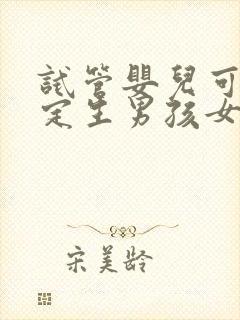 試管嬰兒可
定生男孩女
宋美齡